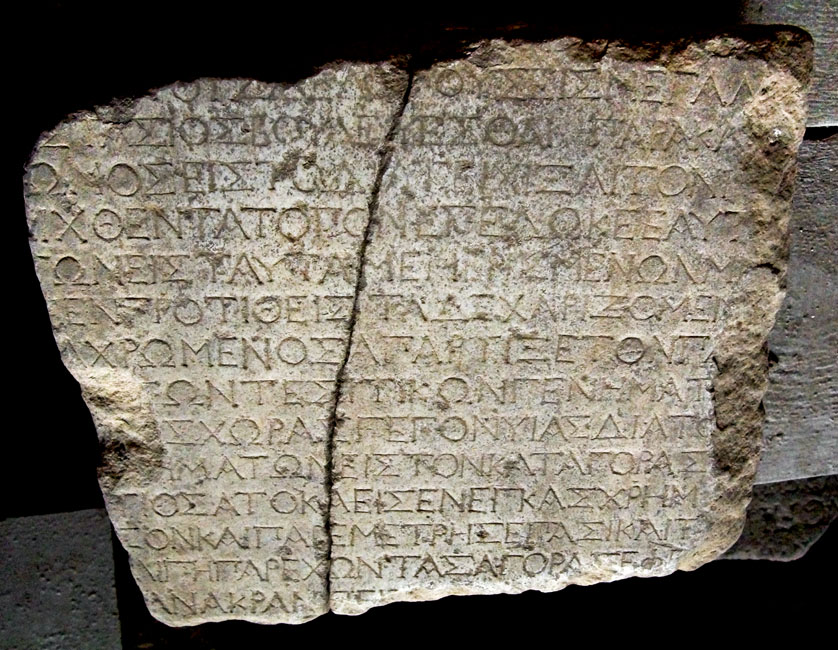 ΟΥΣΕΙΣΜΕΓΑΛ
ΣΙΟΣΒΟΥΛΕ ΕΤΟΔΕΠΑΡΑΚΑ
ΩΝΟΣΕΙΣΤΟ
ΙΧΘΕΝΤΑΤΟΠΟΝΕΠΕΔΩΚΕΕΑΥΤ
ΩΝΕΙΣΤΑΥΤΑΜΕΜΕΡΙΣΜΕΝΩΝΜ
ΕΝΠΡΟΤΙΘΕΙΣΤΑΔΕΧΑΡΙΖΟΜΕΝ
ΑΧΡΩΜΕΝΟΣΑΠΑΡΤΙΞΕΤΟΝΠΑ
ΣΩΝΤΕΣΙΤΙΚΩΝΓΕΝΗΜΑΤ
ΣΧΩΡΑΣΓΕΓΟΝΥΙΑΣΔΙΑΤΟ
ΗΜΑΤΩΝΕΙΣΤΟΝΚΑΤΑΓΟΡΑΣ
ΠΟΣΑΤΟΚΛΕΙΣΕΝΕΓΚΑΣΧΡΗΜ
ΣΟΝΚΑΙΠΑΡΕΜΕΤΡΗΣΕΠΑΣΙΚΑΙΤ
ΠΗΠΑΡΕΧΩΝΤΑΣΑΓΟΡΑΣΕΦ
ΑΝΑΚΡΑΝ